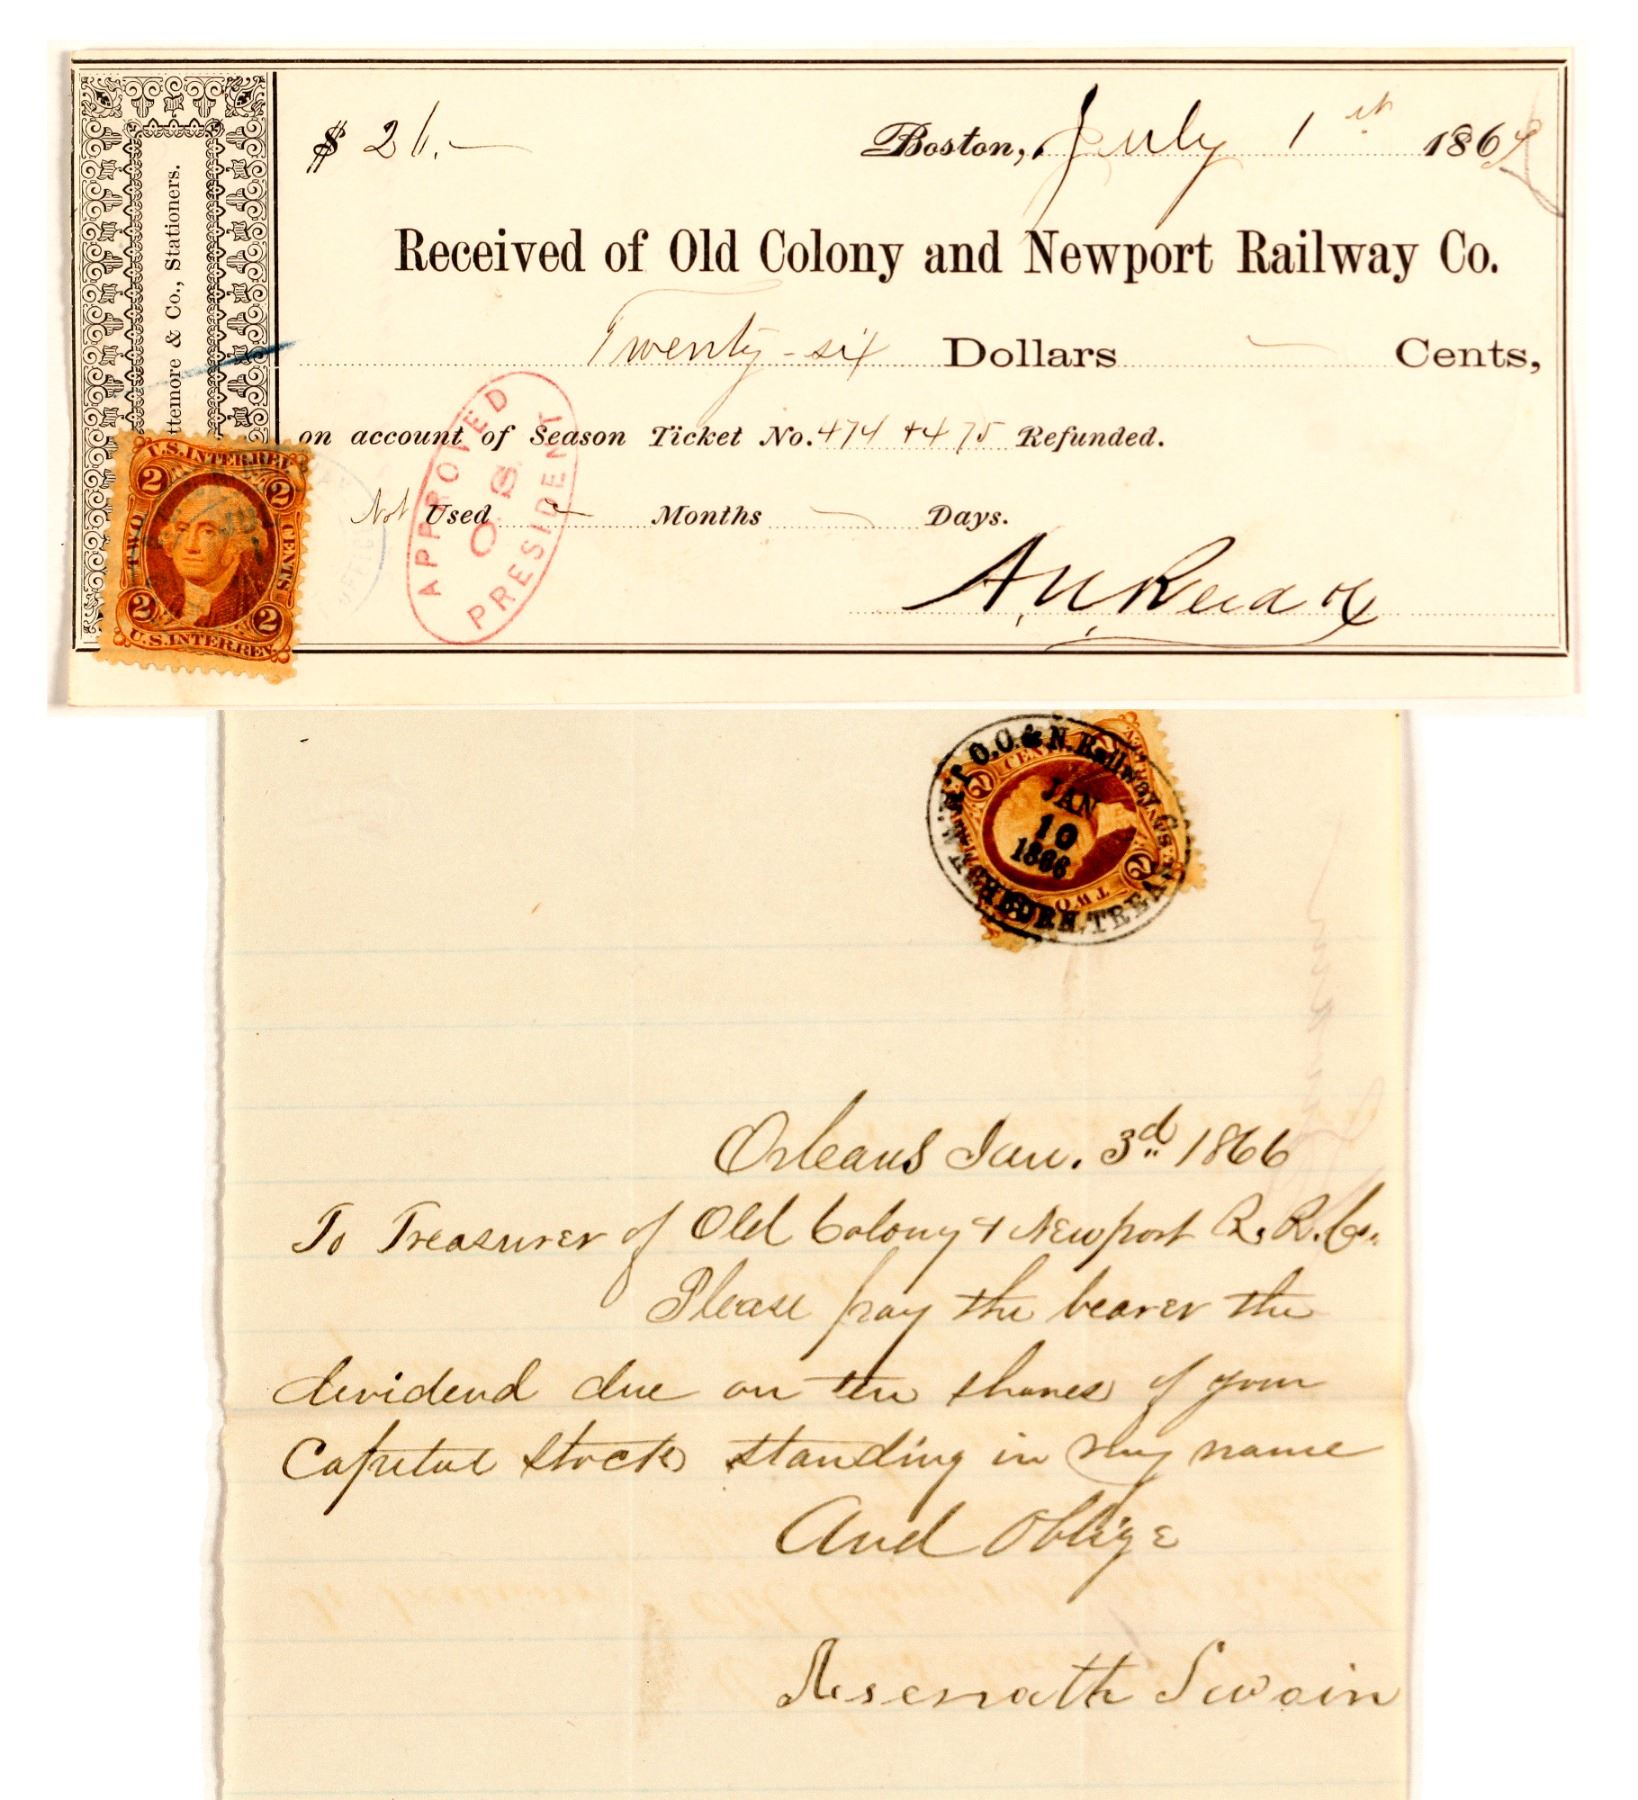 $ 26.-
Boston, July 1st 186
Received of Old Colony and Newport Railway Co.
Twenty-six Dollars Cents,
on account of Season Ticket No. 474 + 475 Refunded.
Not Used Months Days.
& Co., Stationers.
APPROVED
O S
PRESIDENT
U.S. INTER. REV.
2 2
TWO CENTS
2 2
U.S. INTER. REV.
O.C. & N. Railway
JAN
10
1866
TREAS
TWO
Orleans Jan. 3d 1866
To Treasurer of Old Colony & Newport R. R. Co.
Please pay the bearer the
dividend due on ten shares of your
Capital Stock standing in my name
And Oblige
Asenath Swain